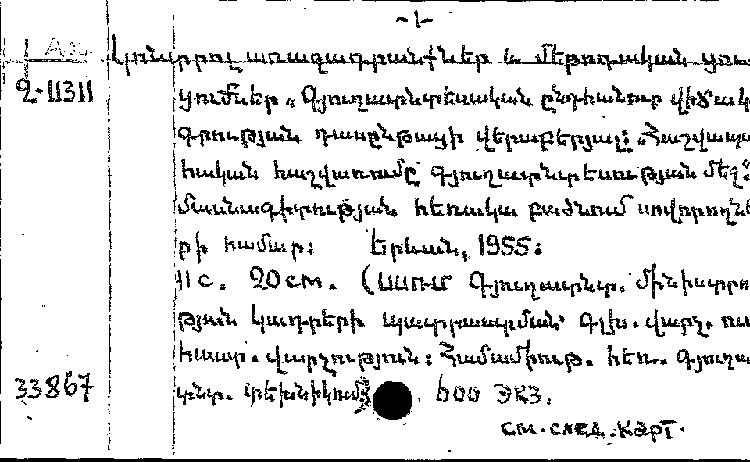 -1-
Կոնտրոլ առաջադրանքներ և մեթոդական ցու
2-11311
ցումներ "Գյուղատնտեսական ընդհանուր վիճակ
գրության դասընթացի վերաբերյալ: "Հաշվապա
հական հաշվառումը գյուղատնտեսության մեջ":
մասնագիտության հեռակա բաժնում սովորողնե
րի համար: Երևան, 1955:
11 с. 20 см. (ՍՍՌՄ Գյուղատնտ. մինիստրու
թյուն կադրերի պատրաստման գլխ. վարչ.
հաստ. վարչություն: Համամիութ. հեռ. գյուղա
33867
տնտ. տեխնիկում) 600 экз.
см. след. карт.